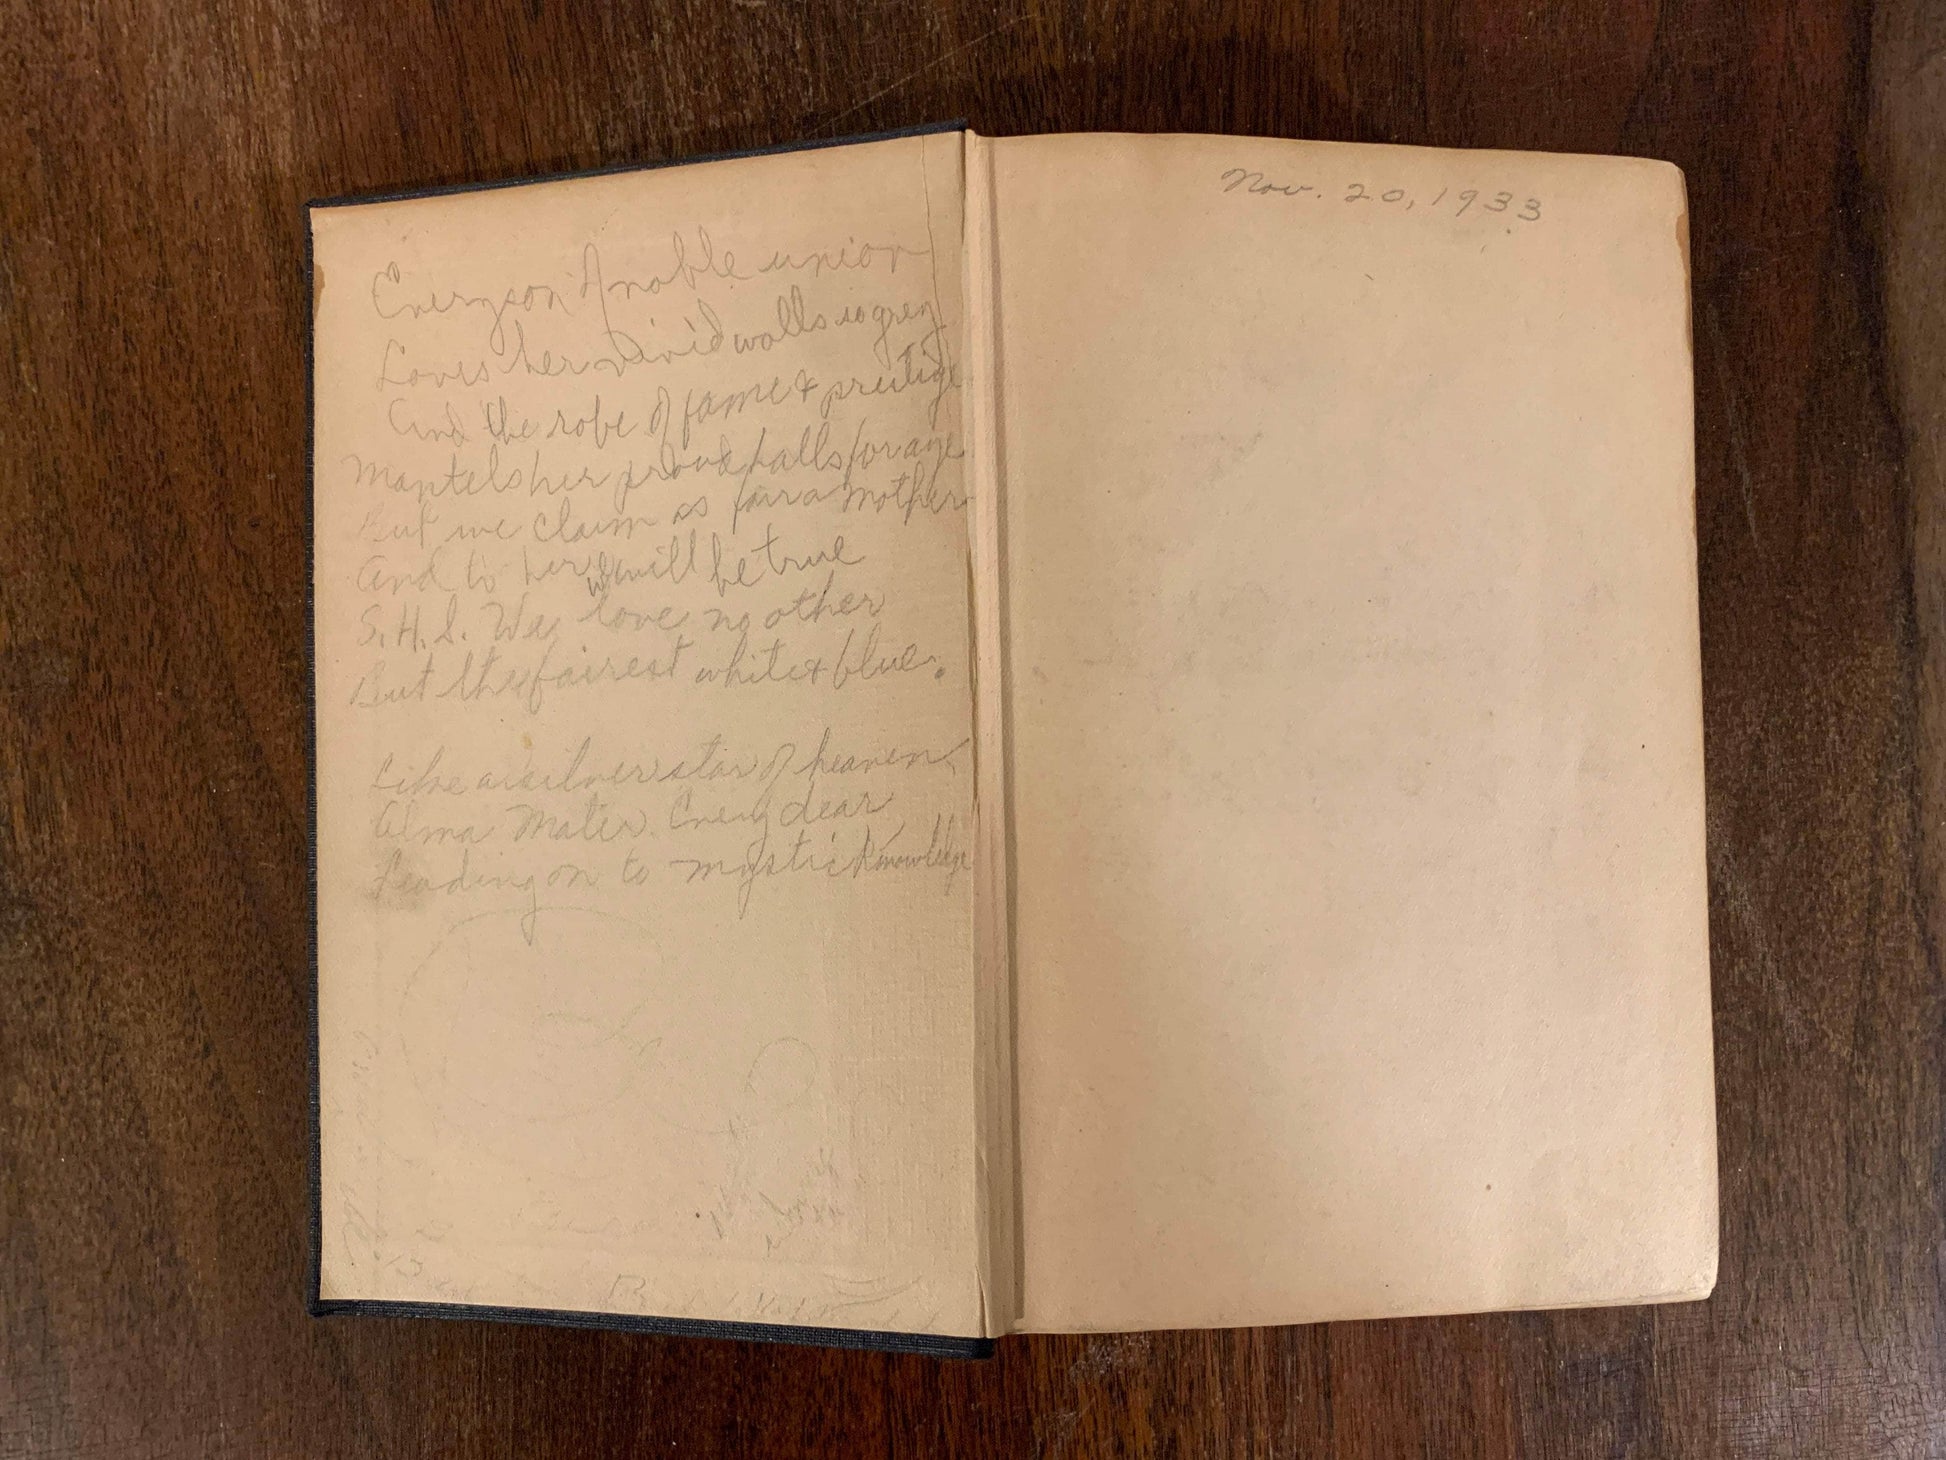 Every son of noble union
Loves her vivid walls so grey
And the robe of fame & prestige
Mantels her proud halls for aye
But we claim as fair a Mother
And to her we will be true
S.H.S. We love no other
But the fairest white & blue.
Like a silver star of heaven
Alma Mater Every dear
Leading on to mystic knowledge
Nov. 20, 1933